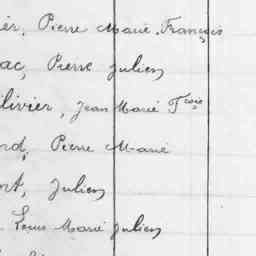 er, Pierre Marie François
ac, Pierre Julien
livier, Jean Marie Fçois
rd, Pierre Marie
nt, Julien
Louis Marie Julien